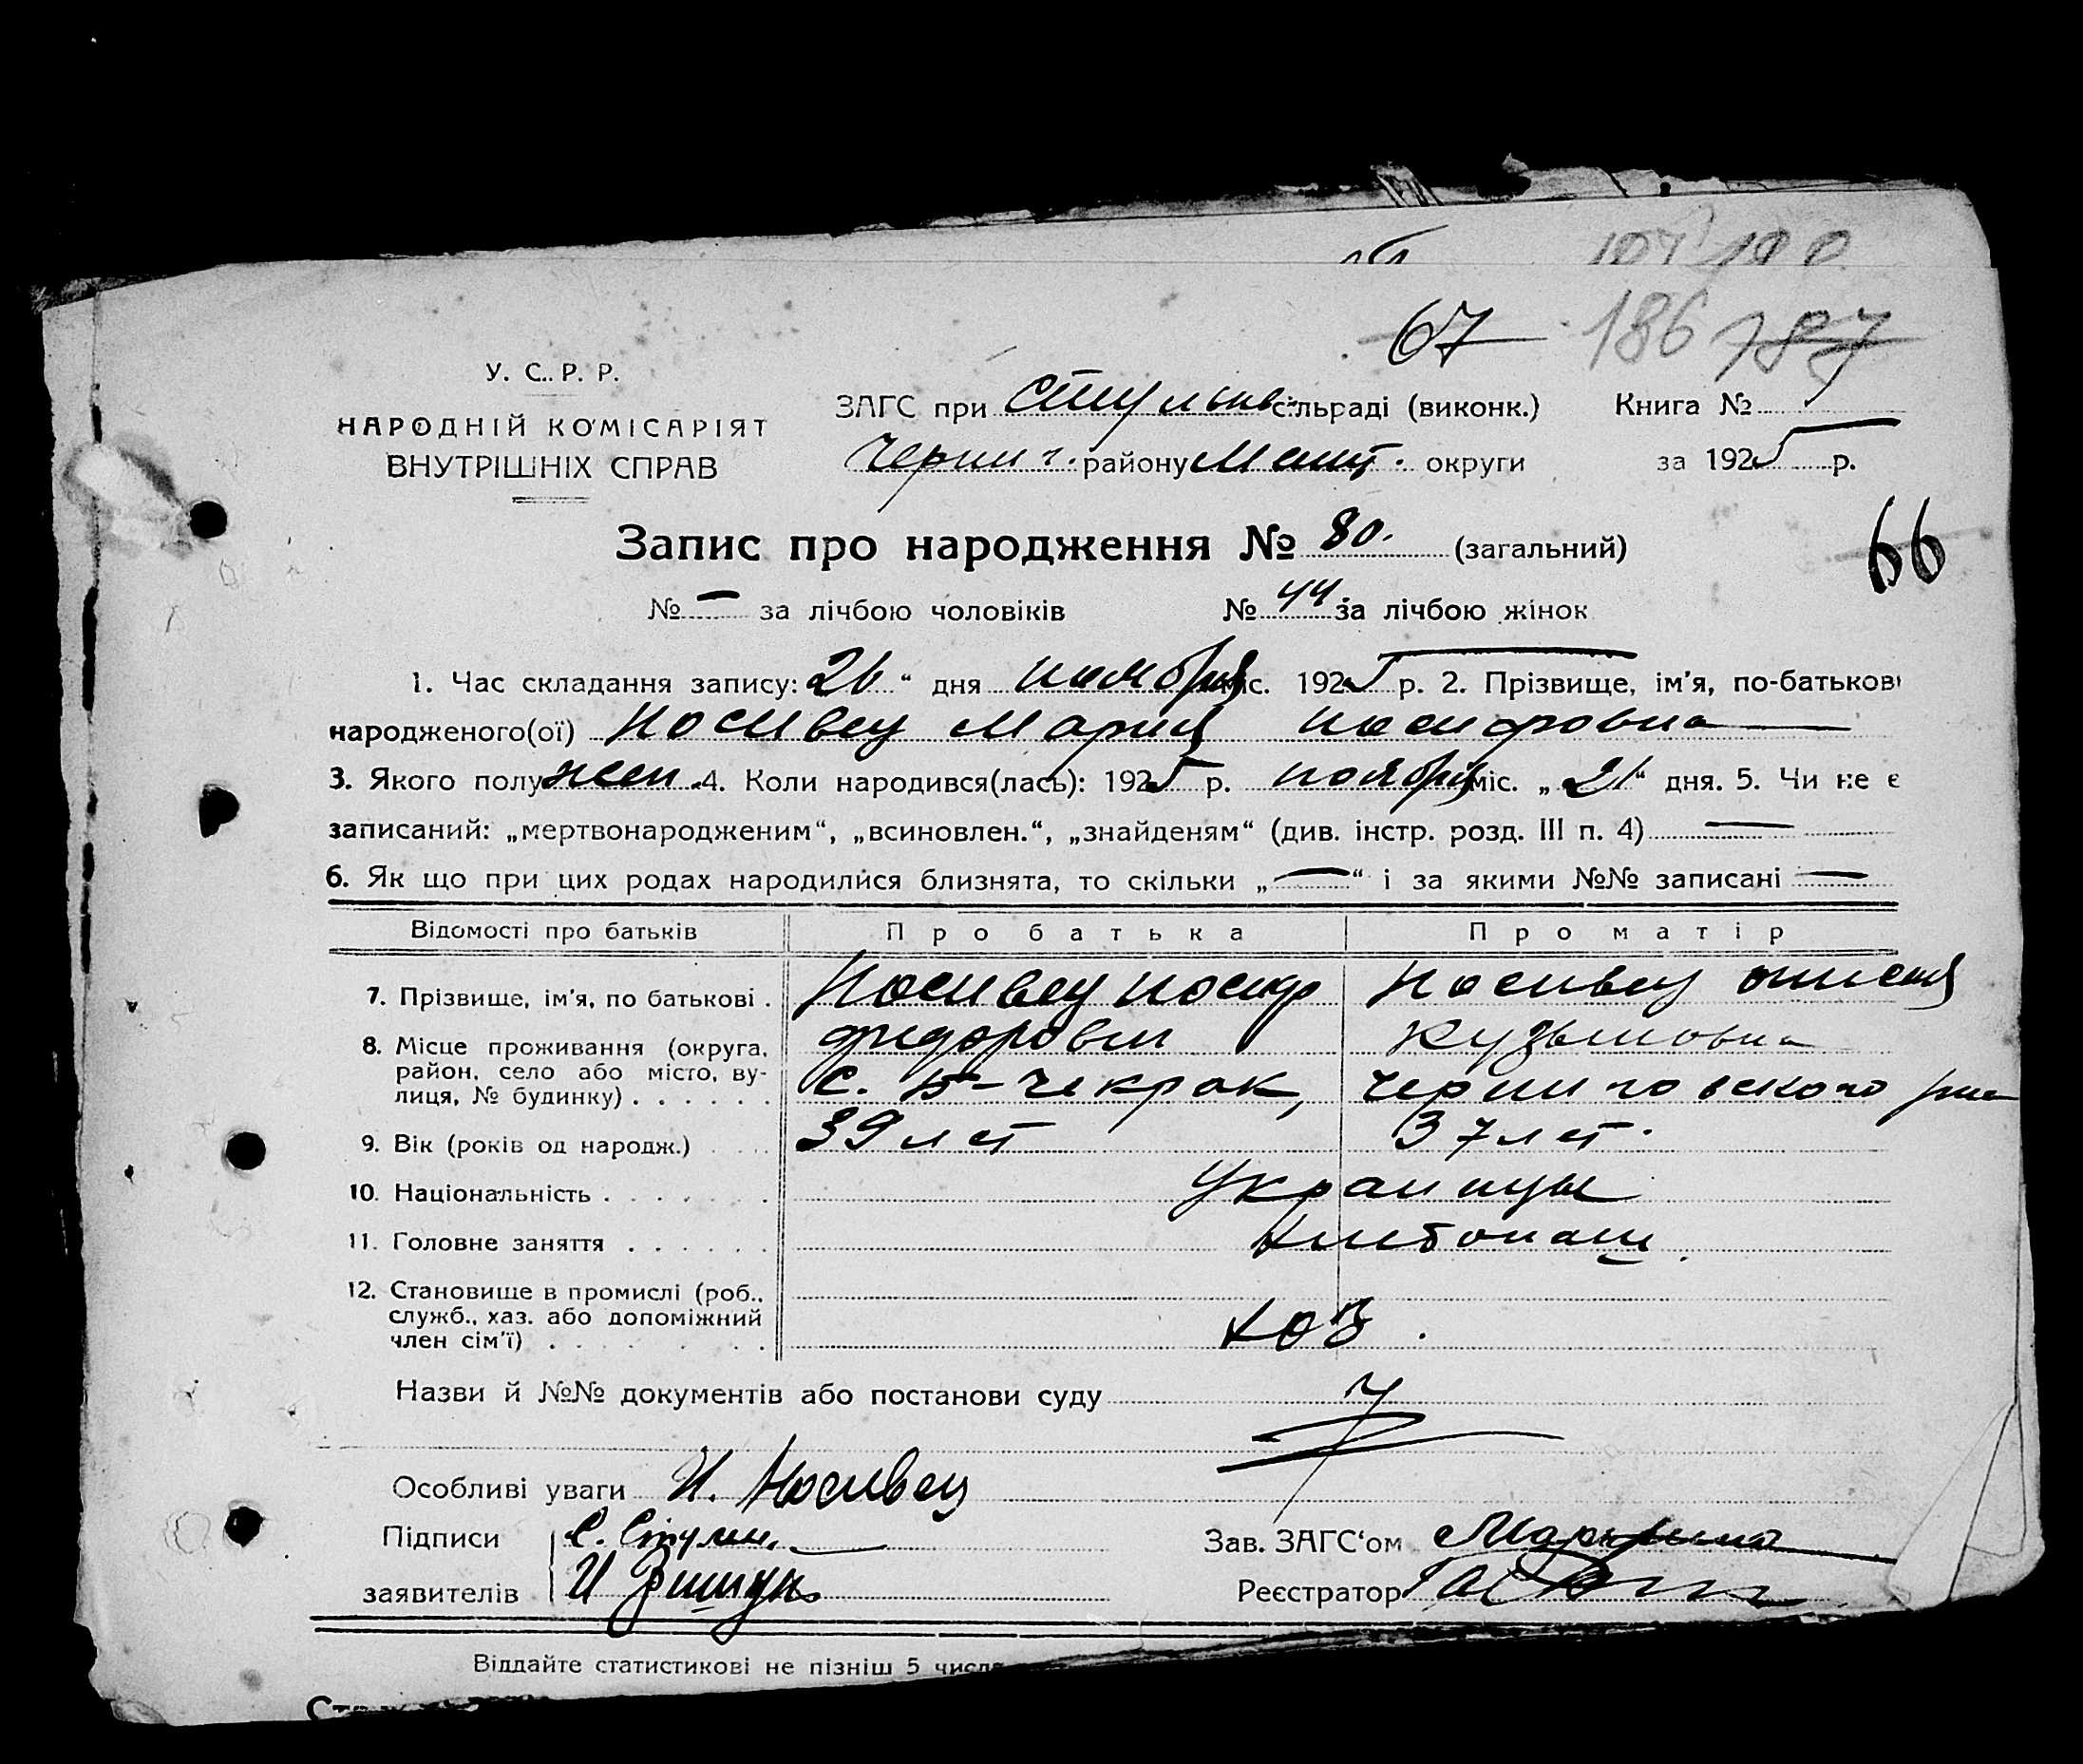 67 186 187
У. С. Р. Р.
НАРОДНІЙ КОМІСАРІЯТ
ВНУТРІШНІХ СПРАВ
ЗАГС при сільраді (виконк.) Книга №
Черниг. району Мелит. округи за 1925 р.
66
Запис про народження № 80. (загальний)
№ — за лічбою чоловіків № 44. за лічбою жінок
1. Час складання запису: 26 " дня ноября міс. 1925 р. 2. Прізвище, ім'я, по-батькові
народженого(ої) Носивец Мария Иосифовна
3. Якого полу жен. 4. Коли народився(лась): 1925 р. ноября міс. „ 21 " дня. 5. Чи не є
записаний: „мертвонародженим“, „всиновлен.“, „знайденям“ (див. інстр. розд. III п. 4) —
6. Як що при цих родах народилися близнята, то скільки „—“ і за якими №№ записані —
Відомості про батьків Про батька Про матір
7. Прізвище, ім'я, по батькові . Носивец Иосиф Носивец
8. Місце проживання (округа, район, село або місто, вулиця, № будинку) . . . . . . Кузьмовна
с. Б-Чекрак, Черниговского
9. Вік (років од народж.) . . . 39 лет 37 лет.
10. Національність . . . . . . . Украинцы
11. Головне заняття . . . . . . Хлебопаш.
12. Становище в промислі (роб.,
служб., хаз. або допоміжний
член сім'ї) . . . . . . . хоз.
Назви й №№ документів або постанови суду
Особливі уваги И. Носивец
Підписи Зав. ЗАГС‘ом
заявителів И Реєстратор
Віддайте статистикові не пізніш 5 числа